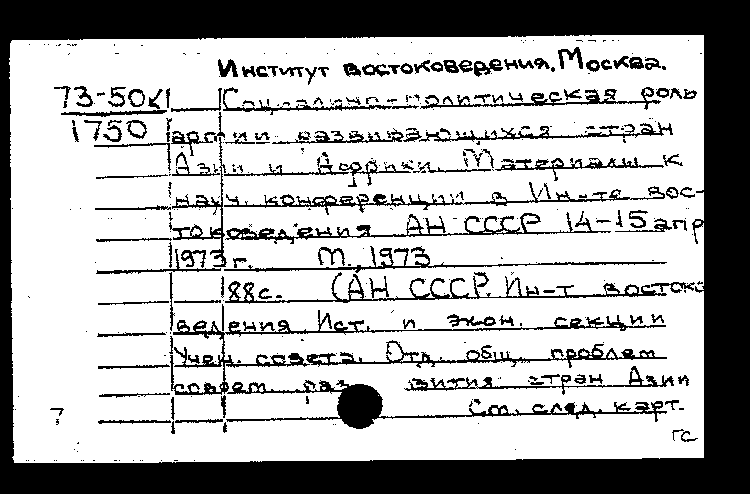 Институт востоковедения, Москва.
73-50к
1750
Социально-политическая роль
армии развивающихся стран
Азии и Африки. Материалы к
науч. конференции в Ин-те вос-
токоведения АН СССР 14-15 апр
1973 г. М., 1973
188с. (АН СССР. Ин-т востоко
ведения Ист. и экон. секции
Учен. совета. Отд. общ. проблем
соврем. раз вития стран Азии
См. след. карт.
7
ГС